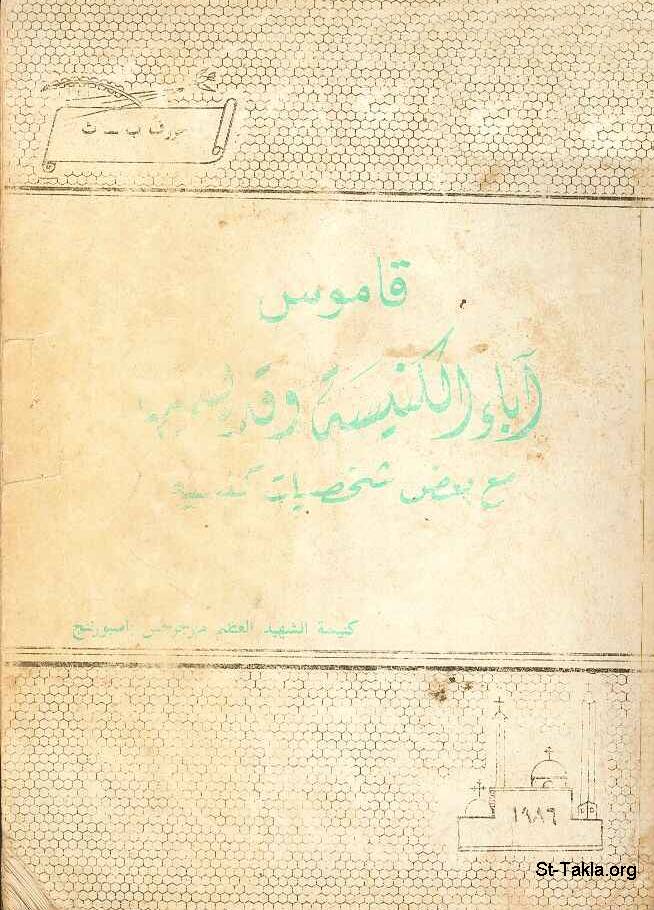 حرف ب - ث
قاموس
آباء الكنيسة وقديسيها
مع بعض شخصيات كنسية
كنيسة الشهيد العظيم مارجرجس اسبورتنج
١٩٨٦
St-Takla.org